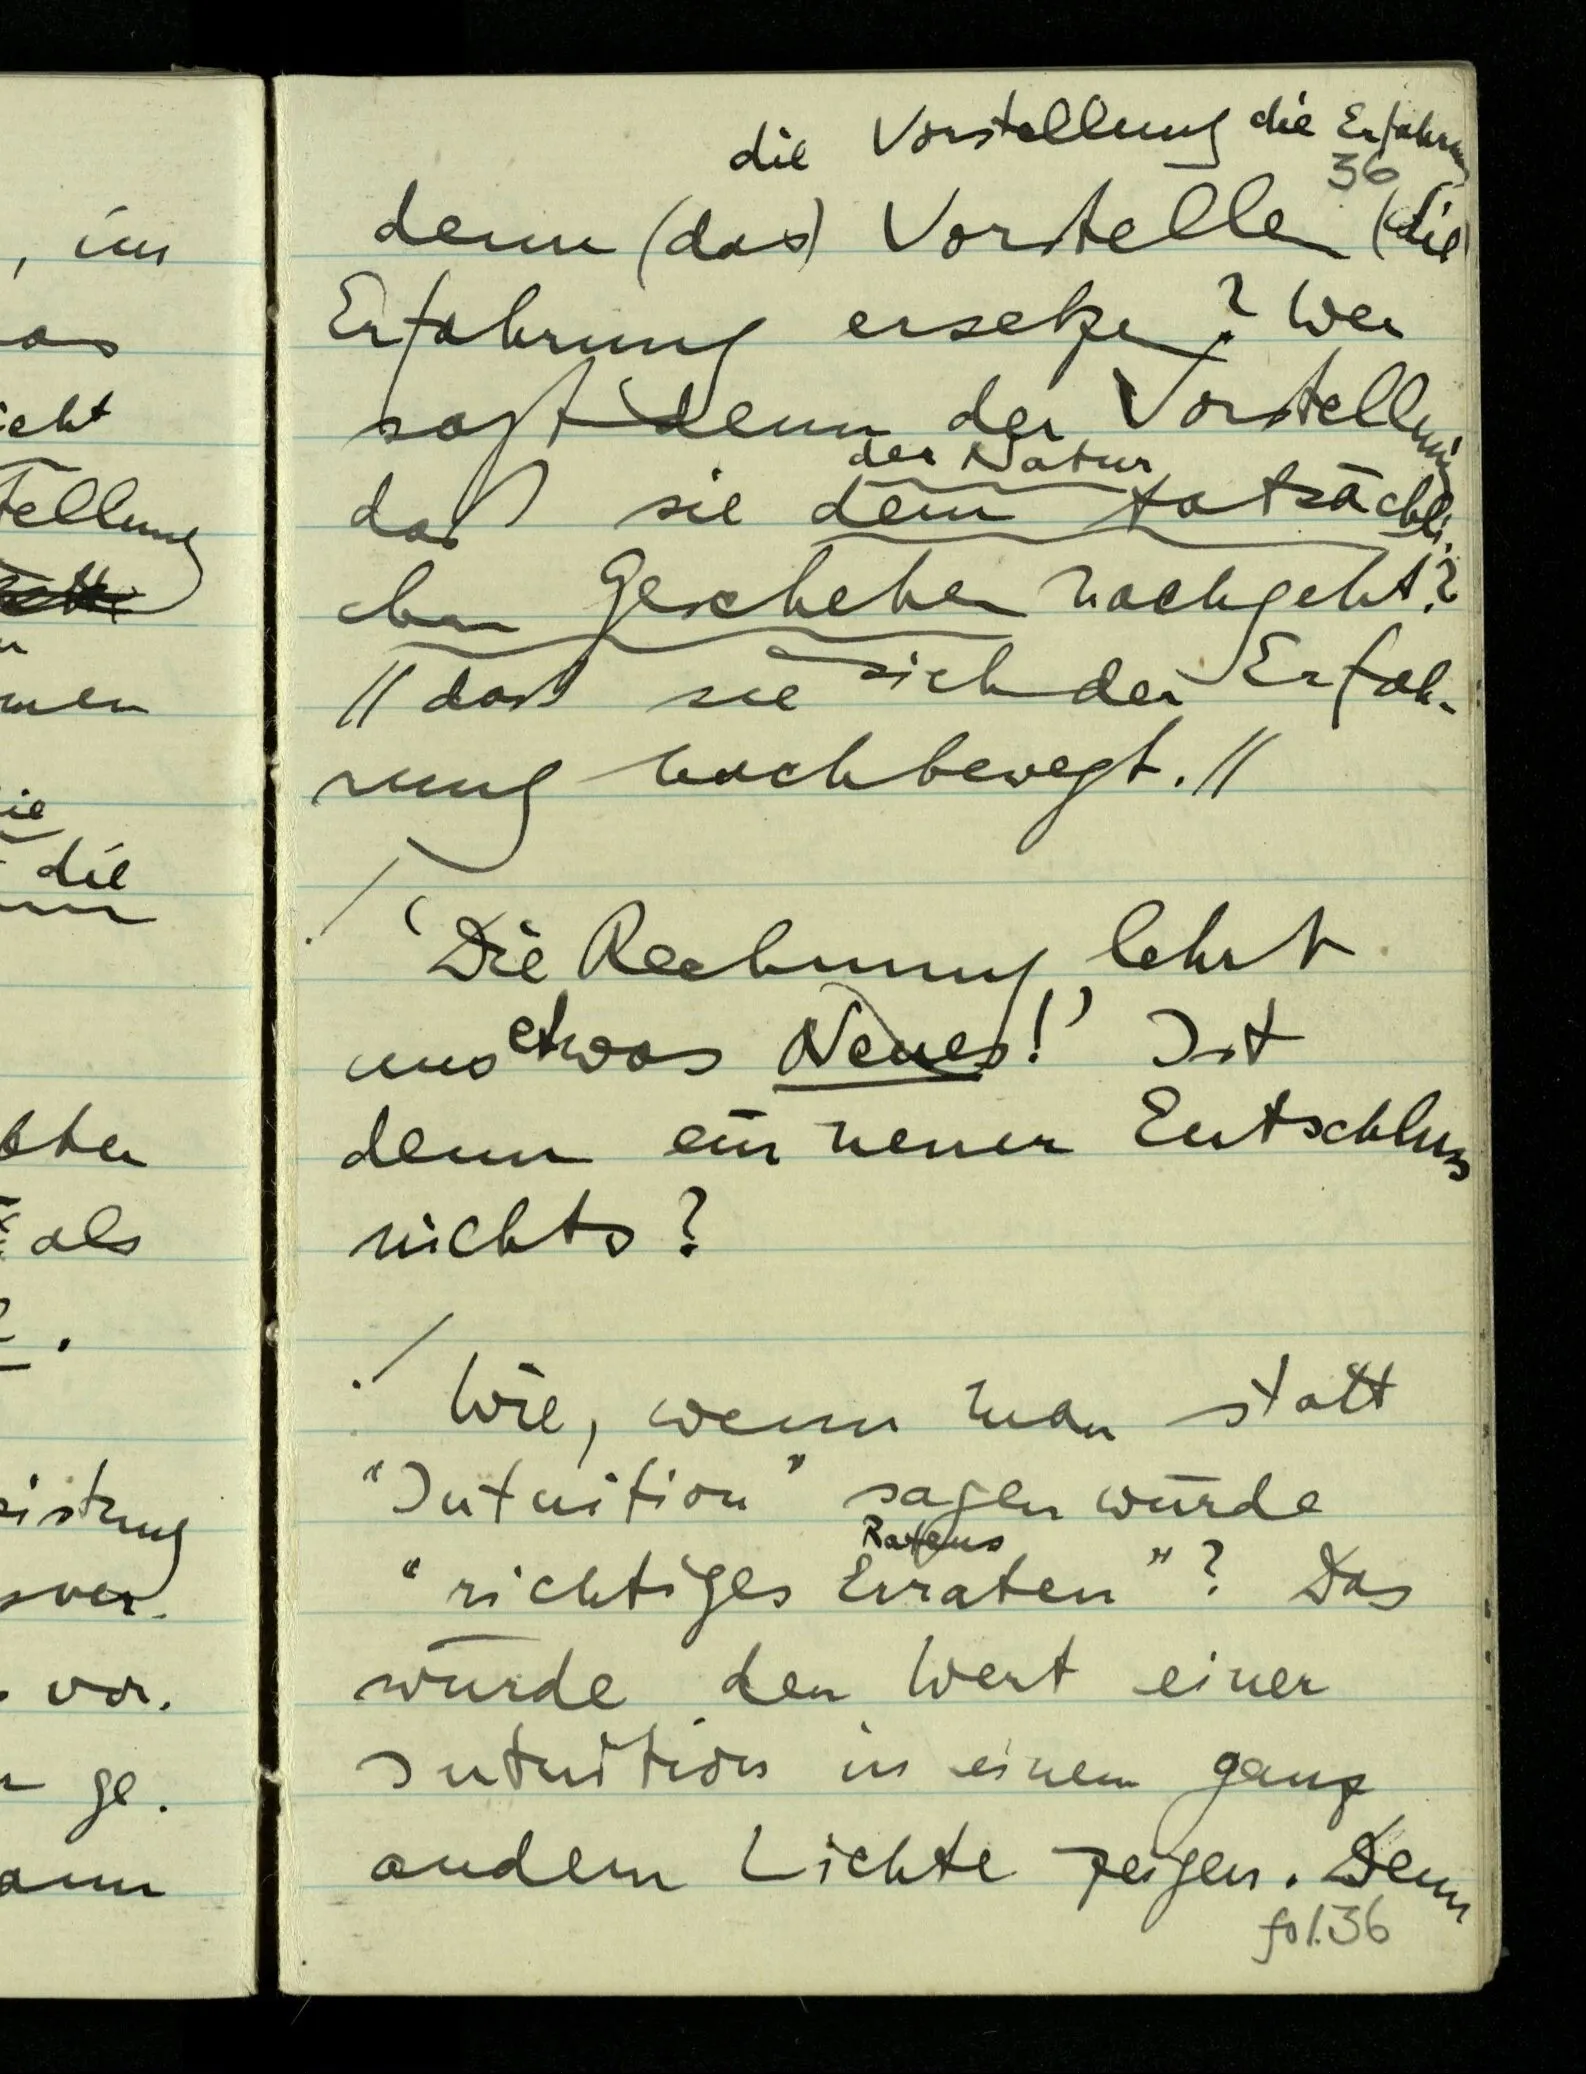 , im
as
icht
tellung
men
ie
die
als
istung
sver-
vor.
ge-
ann
die Vorstellung die Erfahrung
36
denn (das) Vorstellen (die)
Erfahrung ersetzen? Wer
sagt denn der Vorstellung
der Natur
daß sie dem tatsächli-
chen Geschehen nachgeht?
// daß sie sich der Erfah-
rung nachbewegt. //
./
'Die Rechnung lehrt
uns etwas Neues!' Ist
denn ein neuer Entschluss
nichts?
./
Wie, wenn man statt
"Intuition" sagen würde
Ratens
"richtiges Erraten"? Das
würde den Wert einer
Intuition in einem ganz
andern Lichte zeigen. Denn
fol.36